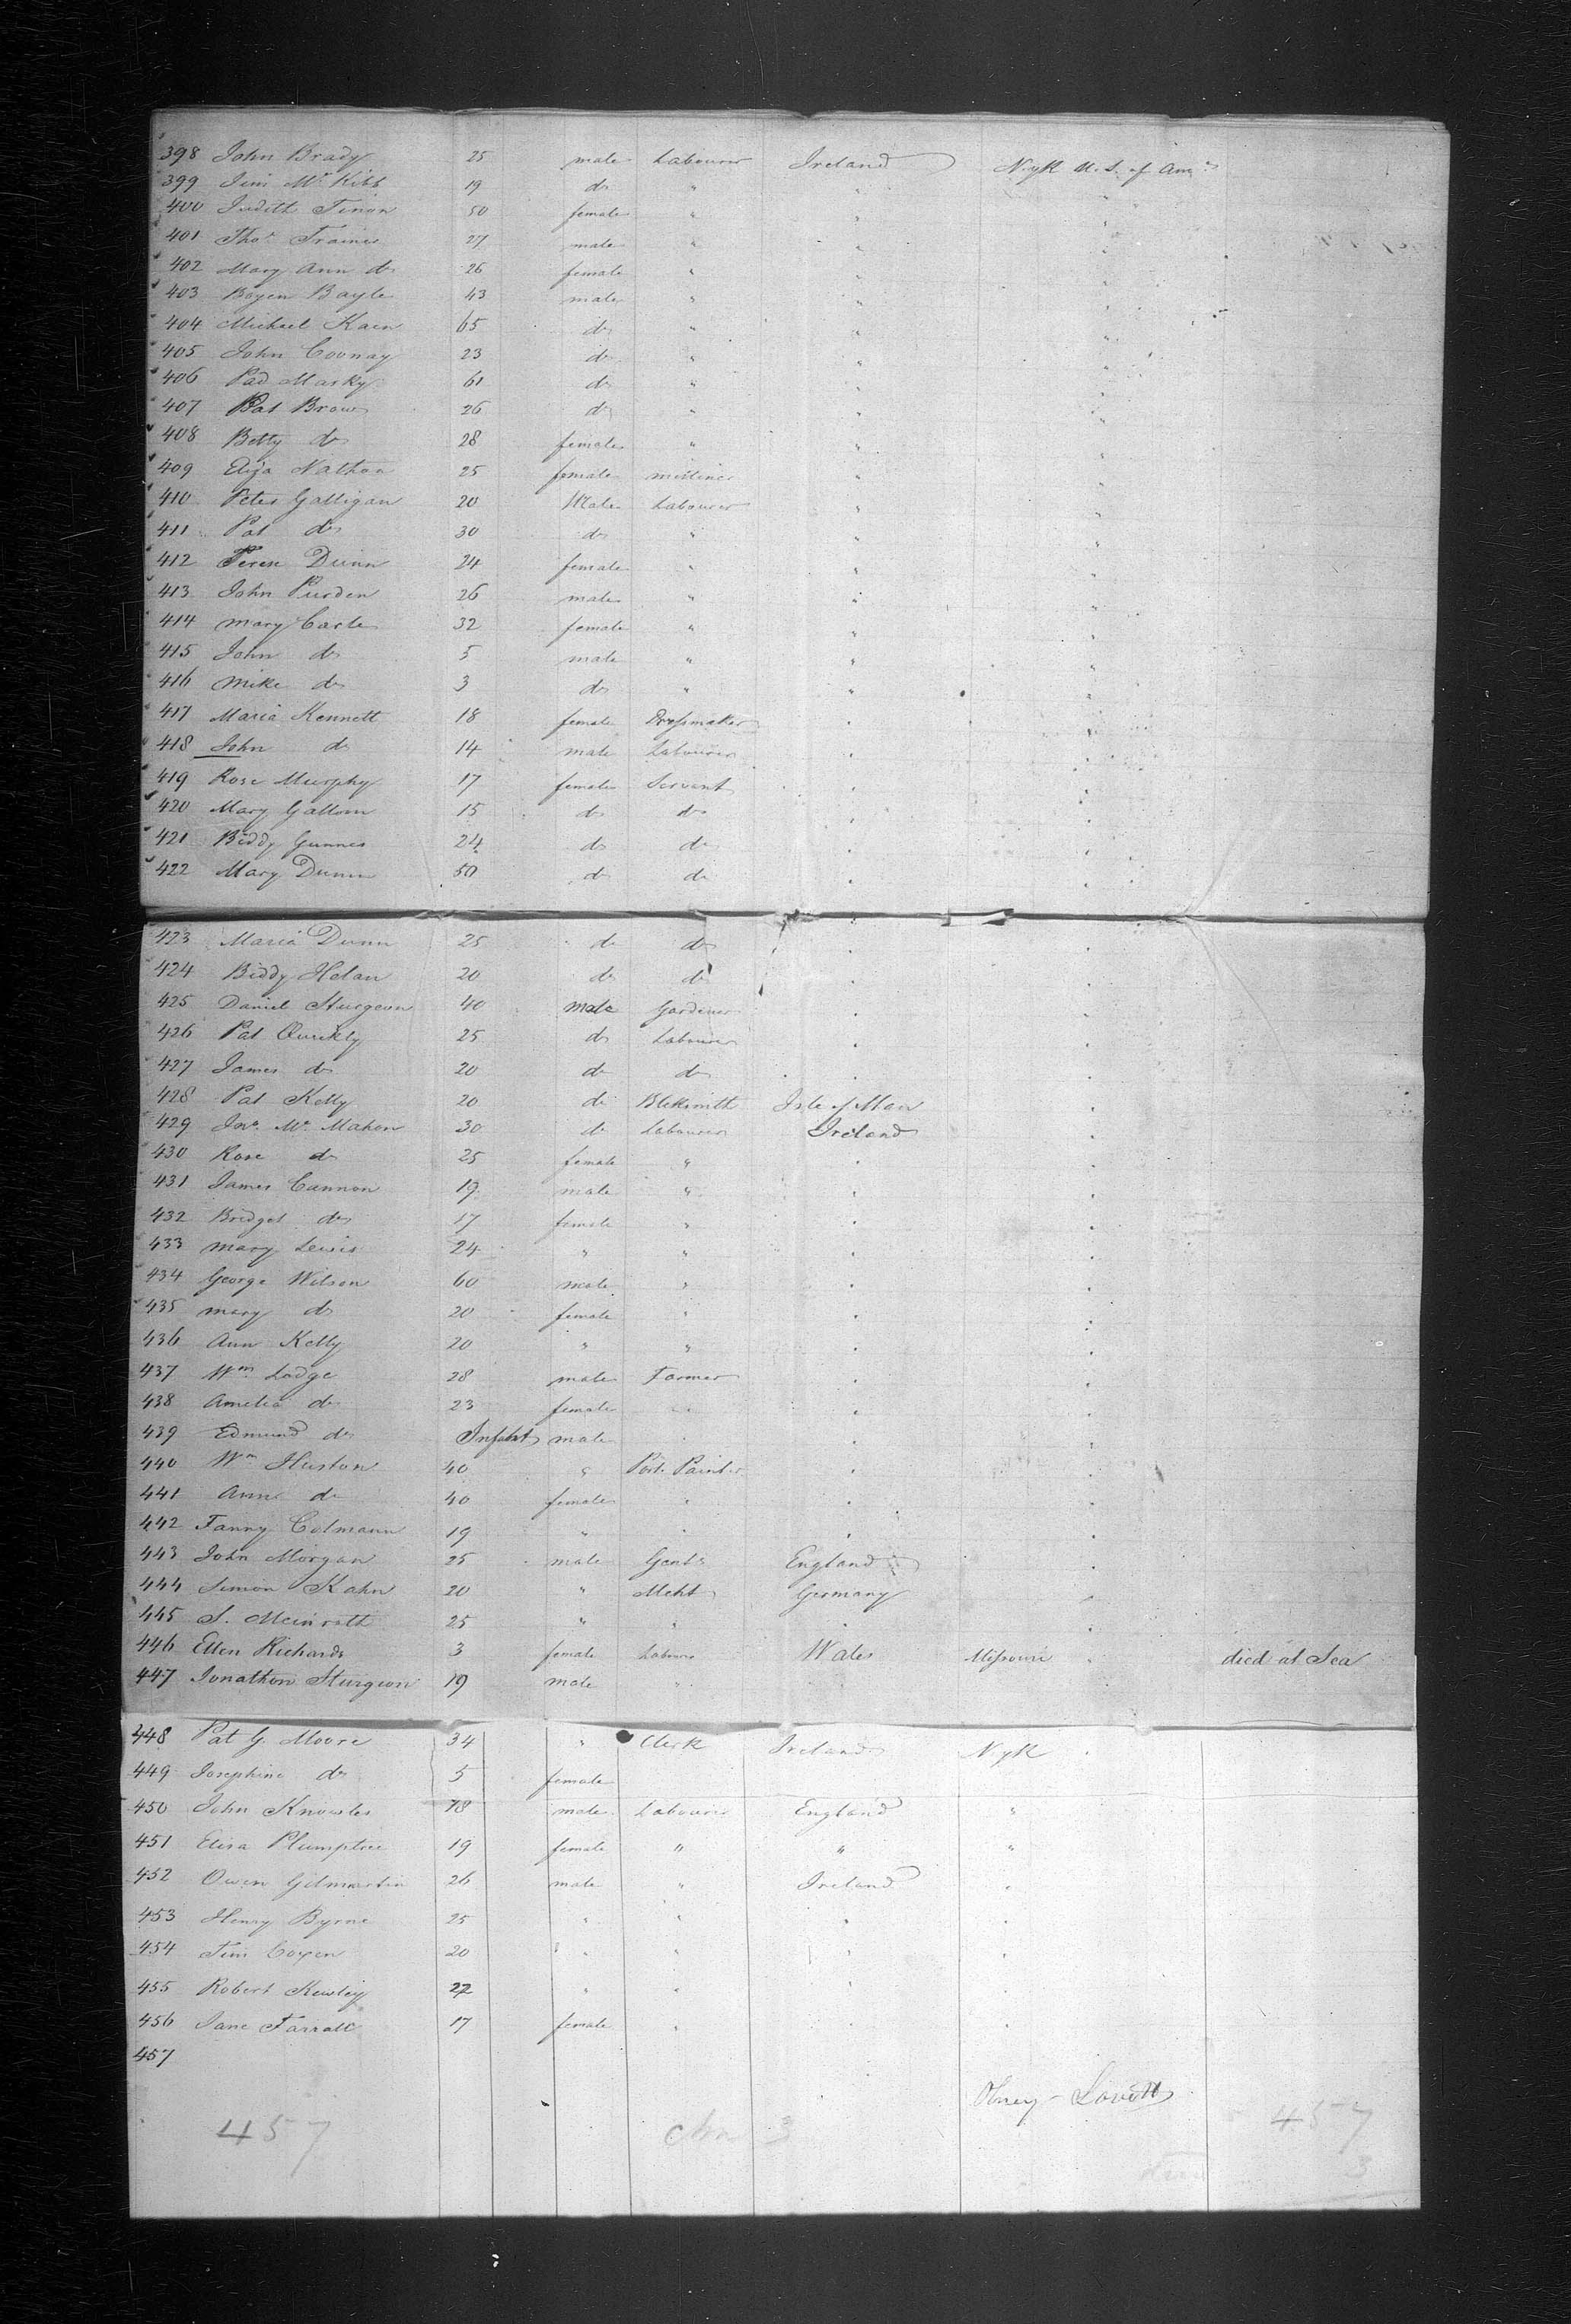 398 John Brady 25 male Labourer Ireland N.yk U.S. of Am
399 Jim Mc Kibb 19 do "
400 Judith Tinon 50 female "
401 Thos. Trainer 27 male "
402 Mary Ann do 26 female "
403 Bayle 43 male "
404 Michael Kain 65 do "
405 John Coonay 23 do "
406 Pad Marky 61 do "
407 Pat Brown 26 do "
408 Betty do 28 female "
409 Eliza Nathan 25 female milliner "
410 Peter Galligan 20 Male Labourer "
411 Pat do 30 do "
412 Dunn 24 female "
413 John Purden 26 male "
414 Mary Carle 32 female "
415 John do 5 male "
416 Mike do 3 do "
417 Maria Kennett 18 female Dressmaker "
418 John do 14 male Labourer "
419 Rose Murphy 17 female Servant "
420 Mary Gallom 15 do do "
421 Biddy Gunnes 24 do do "
422 Mary Dunn 50 do do "
423 Maria Dunn 25 do do "
424 Biddy Helan 20 do do "
425 Daniel Sturgeon 40 male Gardener "
426 Pat Quickly 25 do Labourer "
427 James do 20 do do "
428 Pat Kelly 20 do Blcksmith Isle of Man "
429 Jno. Mc Mahon 30 do Labourer Ireland "
430 Rose do 25 female " "
431 James Cannon 19 male " "
432 Bridget do 17 female " "
433 Mary Lewis 24 " " "
434 George Wilson 60 male " "
435 Mary do 20 female " "
436 Ann Kelly 20 " " "
437 Wm. Lodge 28 male Farmer "
438 Amelia do 23 female " "
439 Edmund do Infant male " "
440 Wm Huston 40 " Port. Painter "
441 Ann do 40 female " "
442 Fanny Colmann 19 " " "
443 John Morgan 25 male Gent England "
444 Simon Kahn 20 " Mcht Germany "
445 S. Meinrath 25 " " "
446 Ellen Richards 3 female Labour Wales Missouri " died at Sea
447 Jonathon Sturgeon 19 male "
448 Pat G. Moore 34 " Clerk Ireland N.yk
449 Josephine do 5 female
450 John Knowles 18 male Labourer England "
451 Elisa Plumptree 19 female " " "
452 Owen Gilmartin 26 male " Ireland "
453 Henry Byrne 25 " " " "
454 Jim Coyen 20 " " " "
455 Robert Kewley 27 " " " "
456 Jane Farrall 17 female " " "
457
Olney Lovett
457 3 457
3